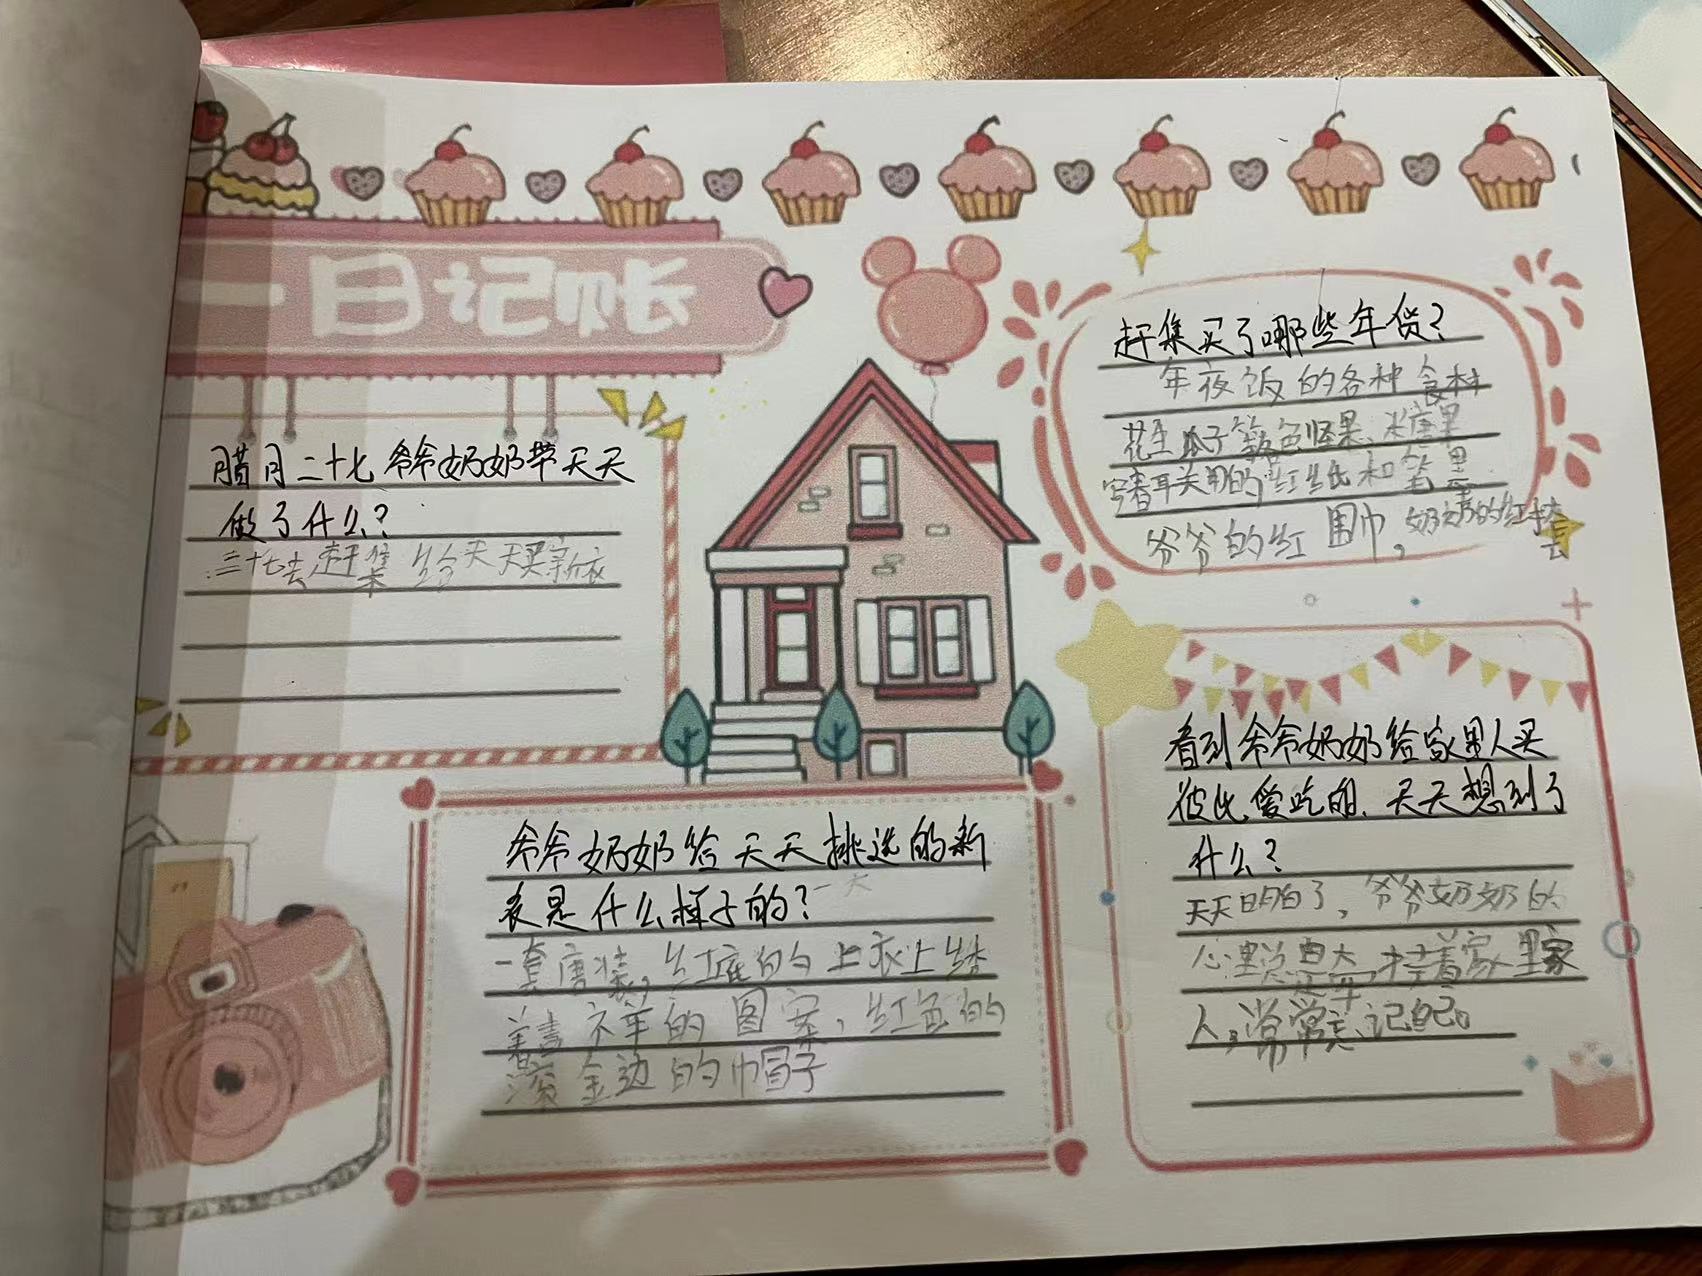 一日记帐
腊月二十七爷爷奶奶带天天
做了什么?
二十七去赶集 给天天买新衣
爷爷奶奶给天天挑选的新
衣是什么样子的?一天
一套唐装,红底的上衣上绣
着吉祥的图案,红色的
滚金边的巾冒子
赶集买了哪些年货?
年夜饭的各种食材
花生瓜子各色坚果、米唐果
写春耳关用的红纸和笔墨
爷爷的红围巾,奶奶的红袜
看到爷爷奶奶给家里人买
彼此爱吃的,天天想到了
什么?
天天明白了,爷爷奶奶的
心里总是牵挂着家里家
人,常常忘记自己。